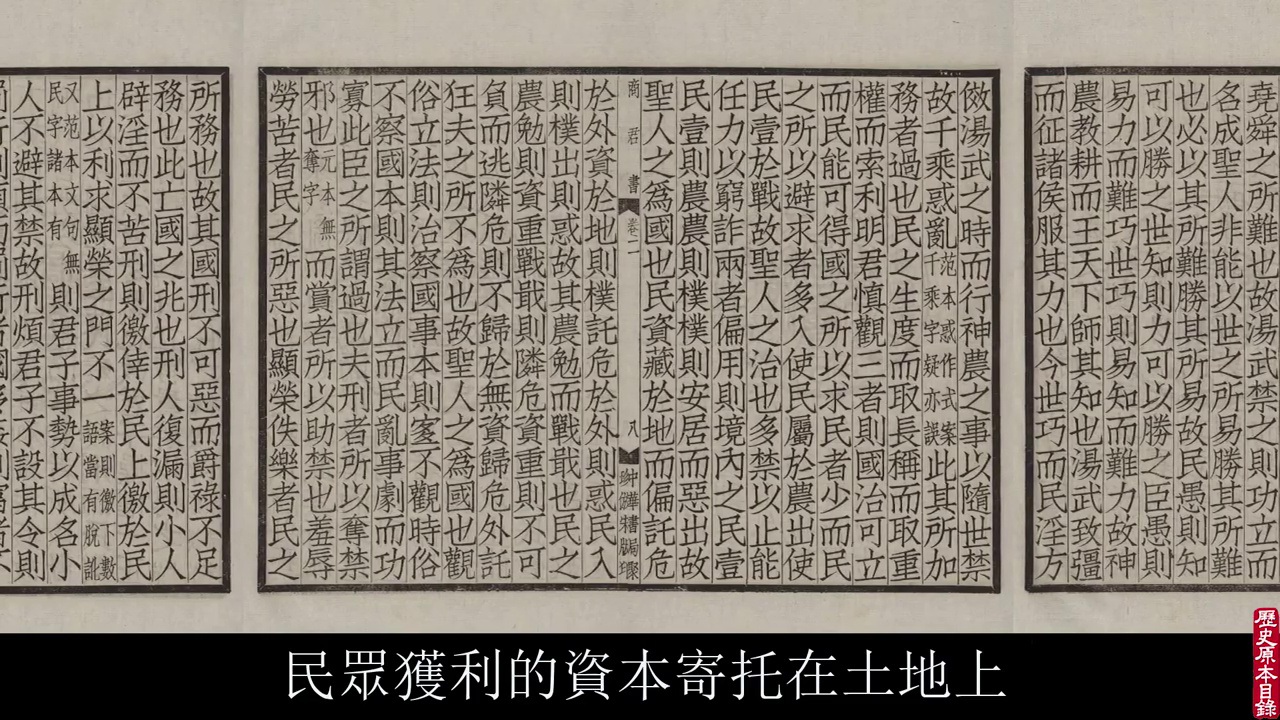 堯舜之所難也故湯武禁之功立而
名成聖人非能以世之所易勝其所難
也必以其所難勝其所易故民愚則知
可以勝之世知則力可以勝之臣愚則
易力而難巧世巧則易知而難力故神
農教耕而王天下師其知也湯武致彊
而征諸侯服其力也今世巧而民淫方
倣湯武之時而行神農之事以隨世禁
故千乘惑亂范本惑作式案千乘字疑亦誤此其所加
務者過也民之生度而取長稱而取重
權而索利明君慎觀三者則國治可立
而民能可得國之所以求民者少而民
之所以避求者多入使民屬於農出使
民壹於戰故聖人之治也多禁以止能
任力以窮詐兩者偏用則境內之民壹
民壹則農農則樸樸則安居而惡出故
聖人之爲國也民資藏於地而偏託危
商君書 卷二 八 中華書局聚
於外資於地則樸託危於外則惑民入
則樸出則惑故其農勉而戰戢也民之
農勉則資重戰戢則隣危資重則不可
負而逃隣危則不歸於無資歸危外託
狂夫之所不爲也故聖人之爲國也觀
俗立法則治察國事本則宜不觀時俗
不察國本則其法立而民亂事劇而功
寡此臣之所謂過也夫刑者所以奪禁
邪也元本無奪字而賞者所以助禁也羞辱
勞苦者民之所惡也顯榮佚樂者民之
所務也故其國刑不可惡而爵祿不足
務也此亡國之兆也刑人復漏則小人
辟淫而不苦刑則徼倖於民上徼於民
上以利求顯榮之門不一案則徼下數語當有脫訛
又范本文句無民字諸本有則君子事勢以成名小
人不避其禁故刑煩君子不設其令則
民眾獲利的資本寄托在土地上
歷史原本目錄